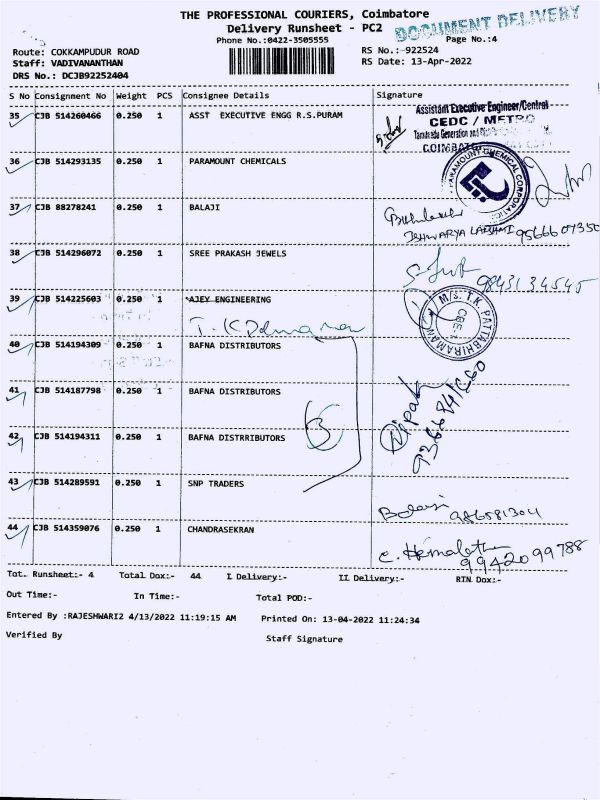 THE PROFESSIONAL COURIERS, Coimbatore
Delivery Runsheet - PC2
DOCUMENT DELIVERY
Phone No.:0422-3505555
Page No.:4
Route: COKKAMPUDUR ROAD
RS No.:-922524
Staff: VADIVANANTHAN
RS Date: 13-Apr-2022
DRS No.: DCJB92252404
S No Consignment No Weight PCS Consignee Details Signature
35 CJB 514260466 0.250 1 ASST EXECUTIVE ENGG R.S.PURAM
Assistant Executive Engineer/Central
CEDC / METRO
36 CJB 514293135 0.250 1 PARAMOUNT CHEMICALS
PARAMOUNT CHEMICAL CORPORATION
37 CJB 88278241 0.250 1 BALAJI
ISHWARYA LAKSHMI 9566607350
38 CJB 514296072 0.250 1 SREE PRAKASH JEWELS
9843134545
39 CJB 514225603 0.250 1 AJEY ENGINEERING
M/S. T.K. PATTABHIRAMAN
CBE-1
40 CJB 514194309 0.250 1 BAFNA DISTRIBUTORS
41 CJB 514187798 0.250 1 BAFNA DISTRIBUTORS
3
Dipak
42 CJB 514194311 0.250 1 BAFNA DISTRRIBUTORS
43 CJB 514289591 0.250 1 SNP TRADERS
44 CJB 514359076 0.250 1 CHANDRASEKRAN
C. Hemalatha
9942099788
Tot. Runsheet:- 4 Total Dox:- 44 I Delivery:- II Delivery:- RTN Dox:-
Out Time:- In Time:- Total POD:-
Entered By :RAJESHWARI2 4/13/2022 11:19:15 AM Printed On: 13-04-2022 11:24:34
Verified By Staff Signature